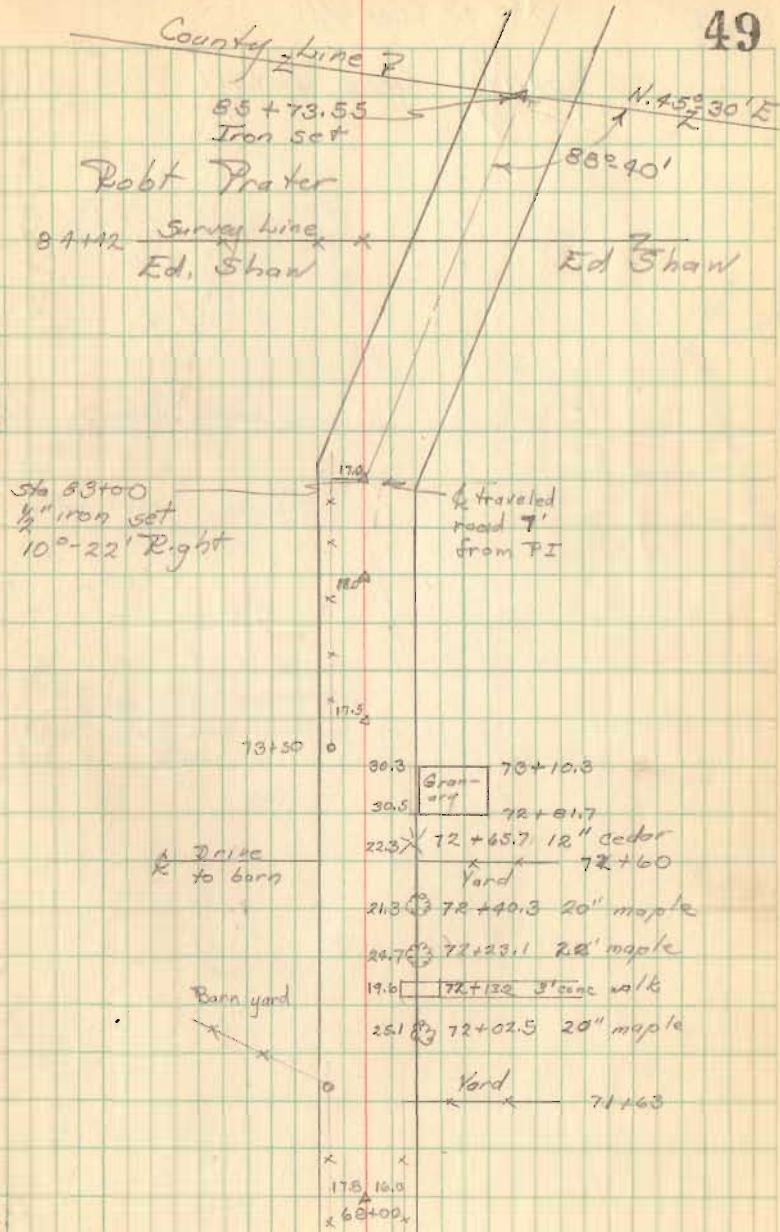 49
County Line
N. 45° 30' E
85 + 73.55
Iron set
88°-40'
Robt Prater
84+42
Survey Line
Ed. Shaw
Ed Shaw
17.0
Sta 83+00
1/2" iron set
10°-22' Right
℄ traveled
road 7'
from PI
18.0
17.5
73+50
30.3
73+10.3
Gran-
ary
30.5
72+81.7
22.3
72+65.7 12" cedar
Drive
to barn
72+60
Yard
21.3
72+40.3 20" maple
24.7
72+23.1 22" maple
Barn yard
19.6
72+13.2 3' conc walk
25.1
72+02.5 20" maple
Yard
71+63
17.8 16.0
68+00